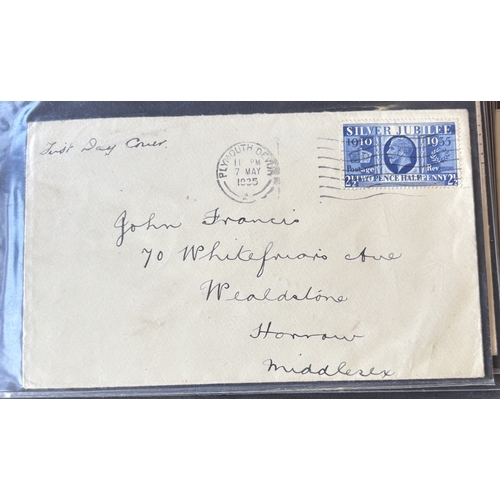 First Day Cover.
PLYMOUTH DEVON
11 PM
7 MAY
1935
SILVER JUBILEE
1910 1935
Postage Rev
2½ TWO PENCE HALFPENNY 2½
John Francis
70 Whitefriars Ave
Wealdstone
Harrow
Middlesex